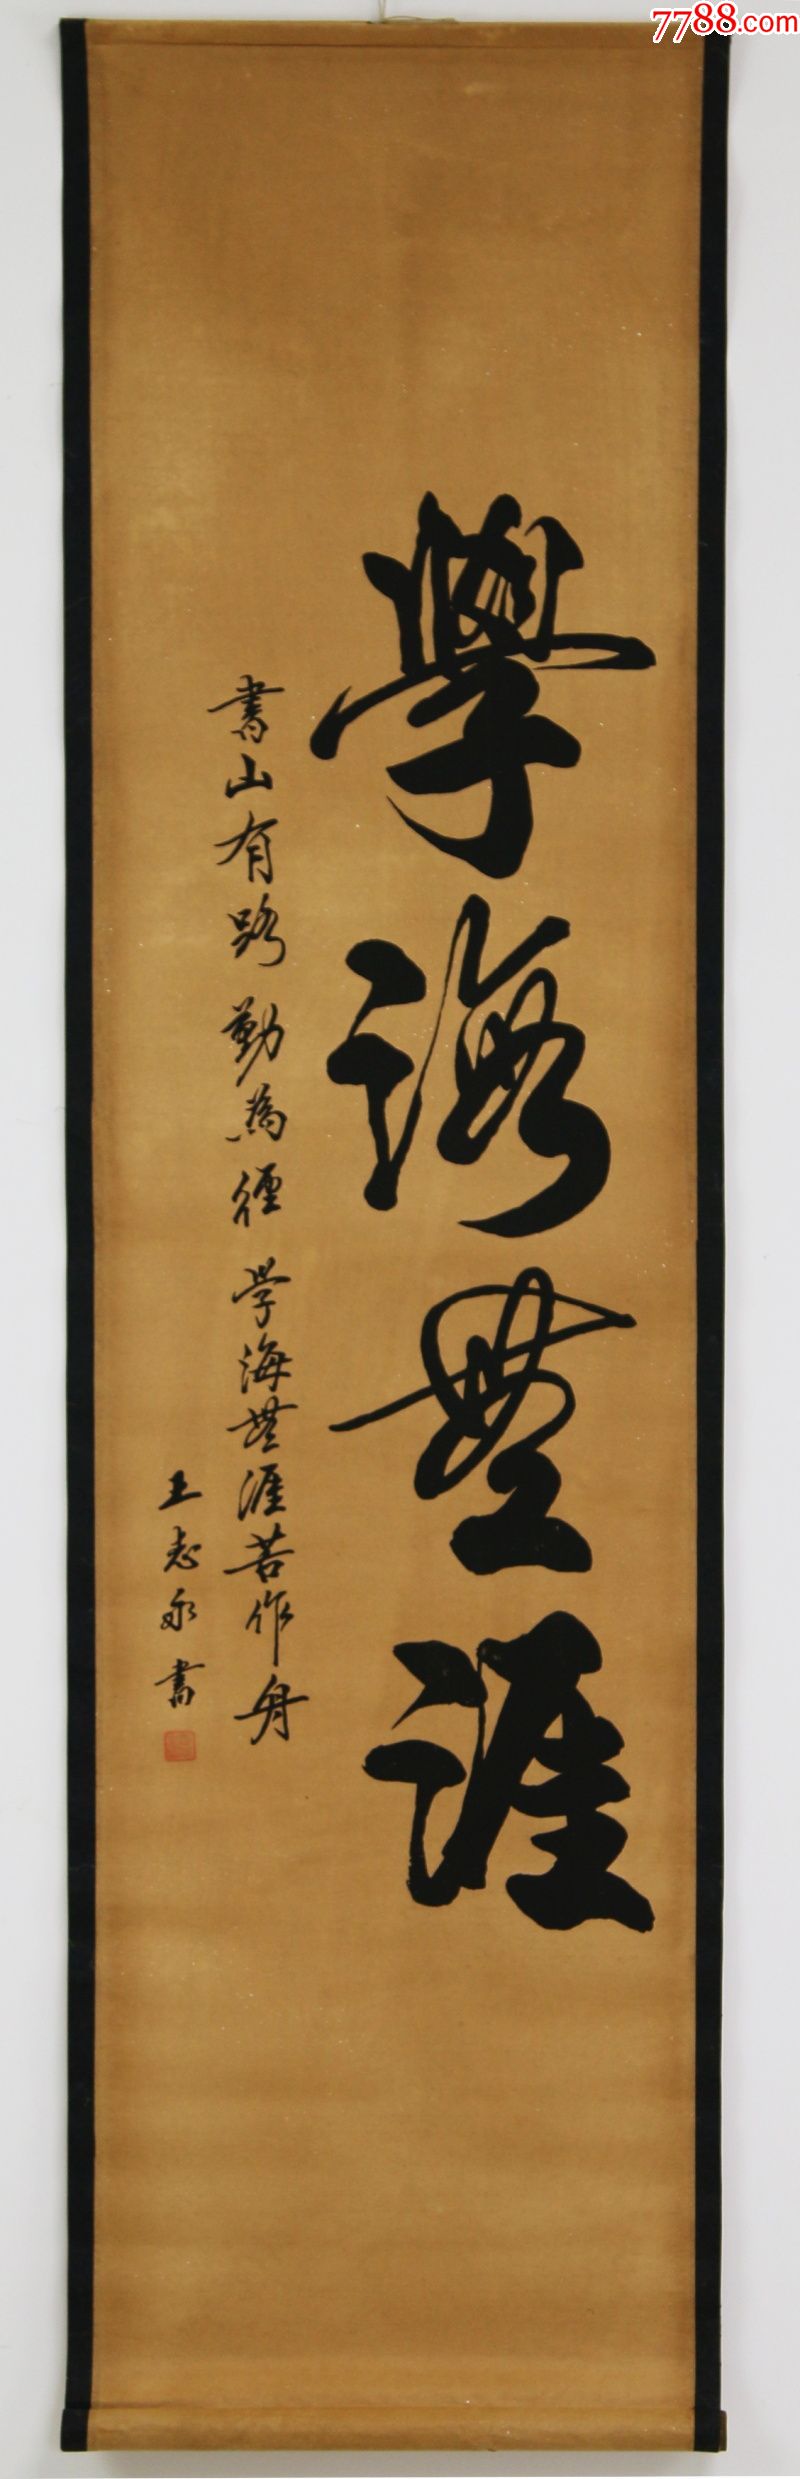 7788.com
學海無涯
書山有路勤為徑學海無涯苦作舟
王志永書